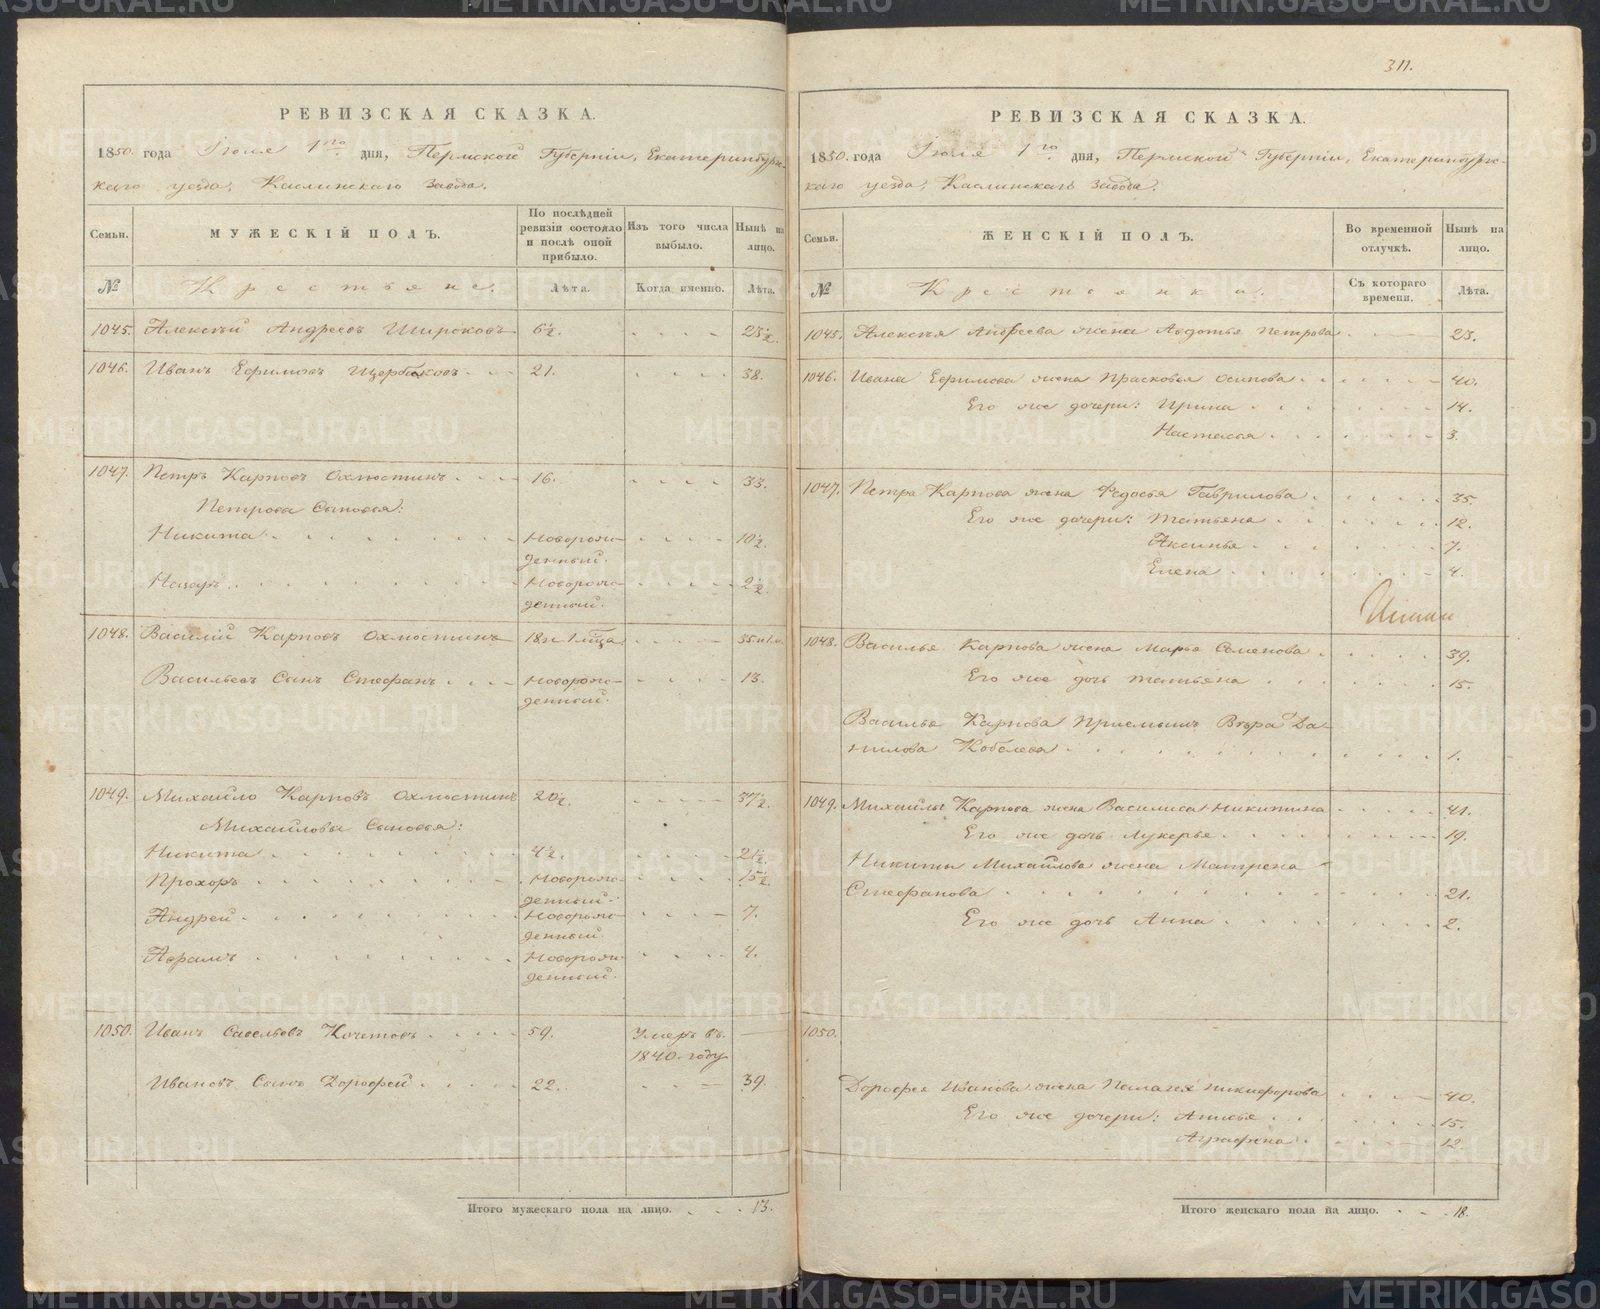 311.
РЕВИЗСКАЯ СКАЗКА.
1850. года Іюля 1го дня, Пермской Губерніи, Екатеринбург-
скаго уезда, Каслинскаго Завода.
Семьи. МУЖЕСКІЙ ПОЛЪ. По послѣдней ревизіи состояло и послѣ оной прибыло. Изъ того числа выбыло. Нынѣ на лицо.
№ Крестьяне. Лѣта. Когда именно. Лѣта.
1045. Алексѣй Андреевъ Широковъ 6½. 23½.
1046. Иванъ Ефимовъ Щербаковъ 21. 38.
1047. Петръ Карповъ Охлюстинъ 16. 33.
Петрова Сыновья:
Никита Новорож- 10½.
денный.
Назаръ Новорож- 2½.
денный.
1048. Василій Карповъ Охлюстинъ 18 и 1 мца 35 и 1 м.
Васильевъ Сынъ Стефанъ Новорож- 13.
денный.
1049. Михайло Карповъ Охлюстинъ 20½. 37½.
Михайловы Сыновья:
Никита 4½. 21½.
Прохоръ Новорож- 15½.
денный.
Андрей Новорож- 7.
денный.
Аврамъ Новорож- 4.
денный.
1050. Иванъ Савельевъ Кочетовъ 59. Умеръ въ —
1840. году
Ивановъ Сынъ Дорофей 22. 39.
Итого мужескаго пола на лицо. 13.
РЕВИЗСКАЯ СКАЗКА.
1850. года Іюля 1го дня, Пермской Губерніи, Екатеринбургс-
каго уезда, Каслинскаго Завода.
Семьи. ЖЕНСКІЙ ПОЛЪ. Во временной отлучкѣ. Нынѣ на лицо.
№ Крестьянки. Съ котораго времени. Лѣта.
1045. Алексѣя Андреева жена Авдотья Петрова 23.
1046. Ивана Ефимова жена Прасковья Осипова 40.
Его же дочери: Ирина 14.
Настасья 3.
1047. Петра Карпова жена Федосья Гаврилова 35.
Его же дочери: Татьяна 12.
Аксинья 7.
Елена 4.
1048. Василья Карпова жена Марья Семенова 39.
Его же дочь Татьяна 15.
Василья Карпова Приемышъ Вѣра Да-
нилова Кобелева 1.
1049. Михайлы Карпова жена Василиса Никитина 41.
Его же дочь Лукерья 19.
Никиты Михайлова жена Матрена
Стефанова 21.
Его же дочь Анна 2.
1050.
Дорофея Иванова жена Пелагея Никифорова 40.
Его же дочери: Анисья 15.
Аграфена 12
Итого женскаго пола на лицо. 18.
METRIKI.GASO-URAL.RU